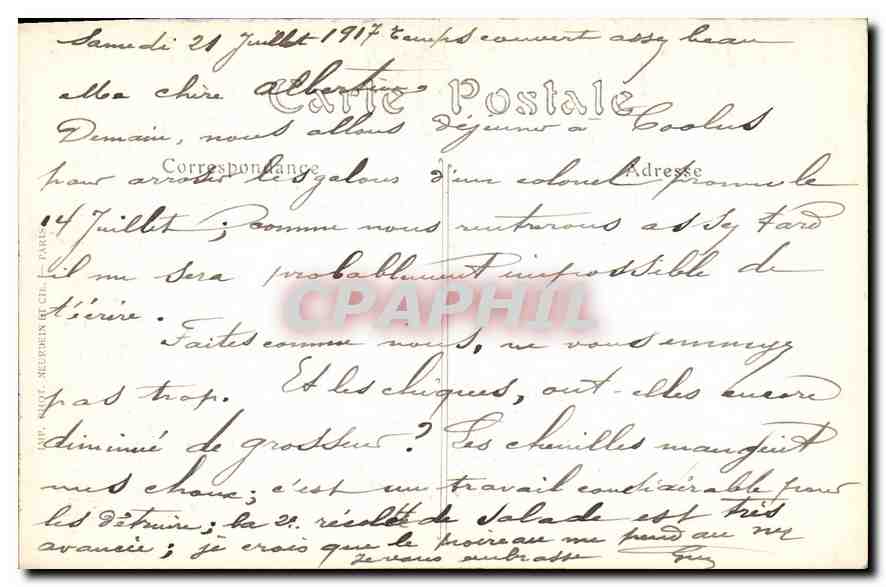 Samedi 21 Juillet 1917 temps couvert assez beau
Ma chère Albertine
Carte Postale
Demain, nous allons déjeuner à Coolus
Correspondance
Adresse
pour arroser les galons d'un colonel promu le
14 Juillet ; comme nous rentrerons assez tard
il me sera probablement impossible de
t'écrire.
Faites comme nous, ne vous ennuyez
pas trop. Et les chiques, ont-elles encore
diminué de grosseur ? Les chenilles mangent
mes choux ; c'est un travail considérable pour
les détruire ; la 2e récolte de salade est très
avancée ; je crois que le poireau me pend au nez
je vous embrasse
IMP. PHOT. NEURDEIN ET CIE. — PARIS
CPAPHIL